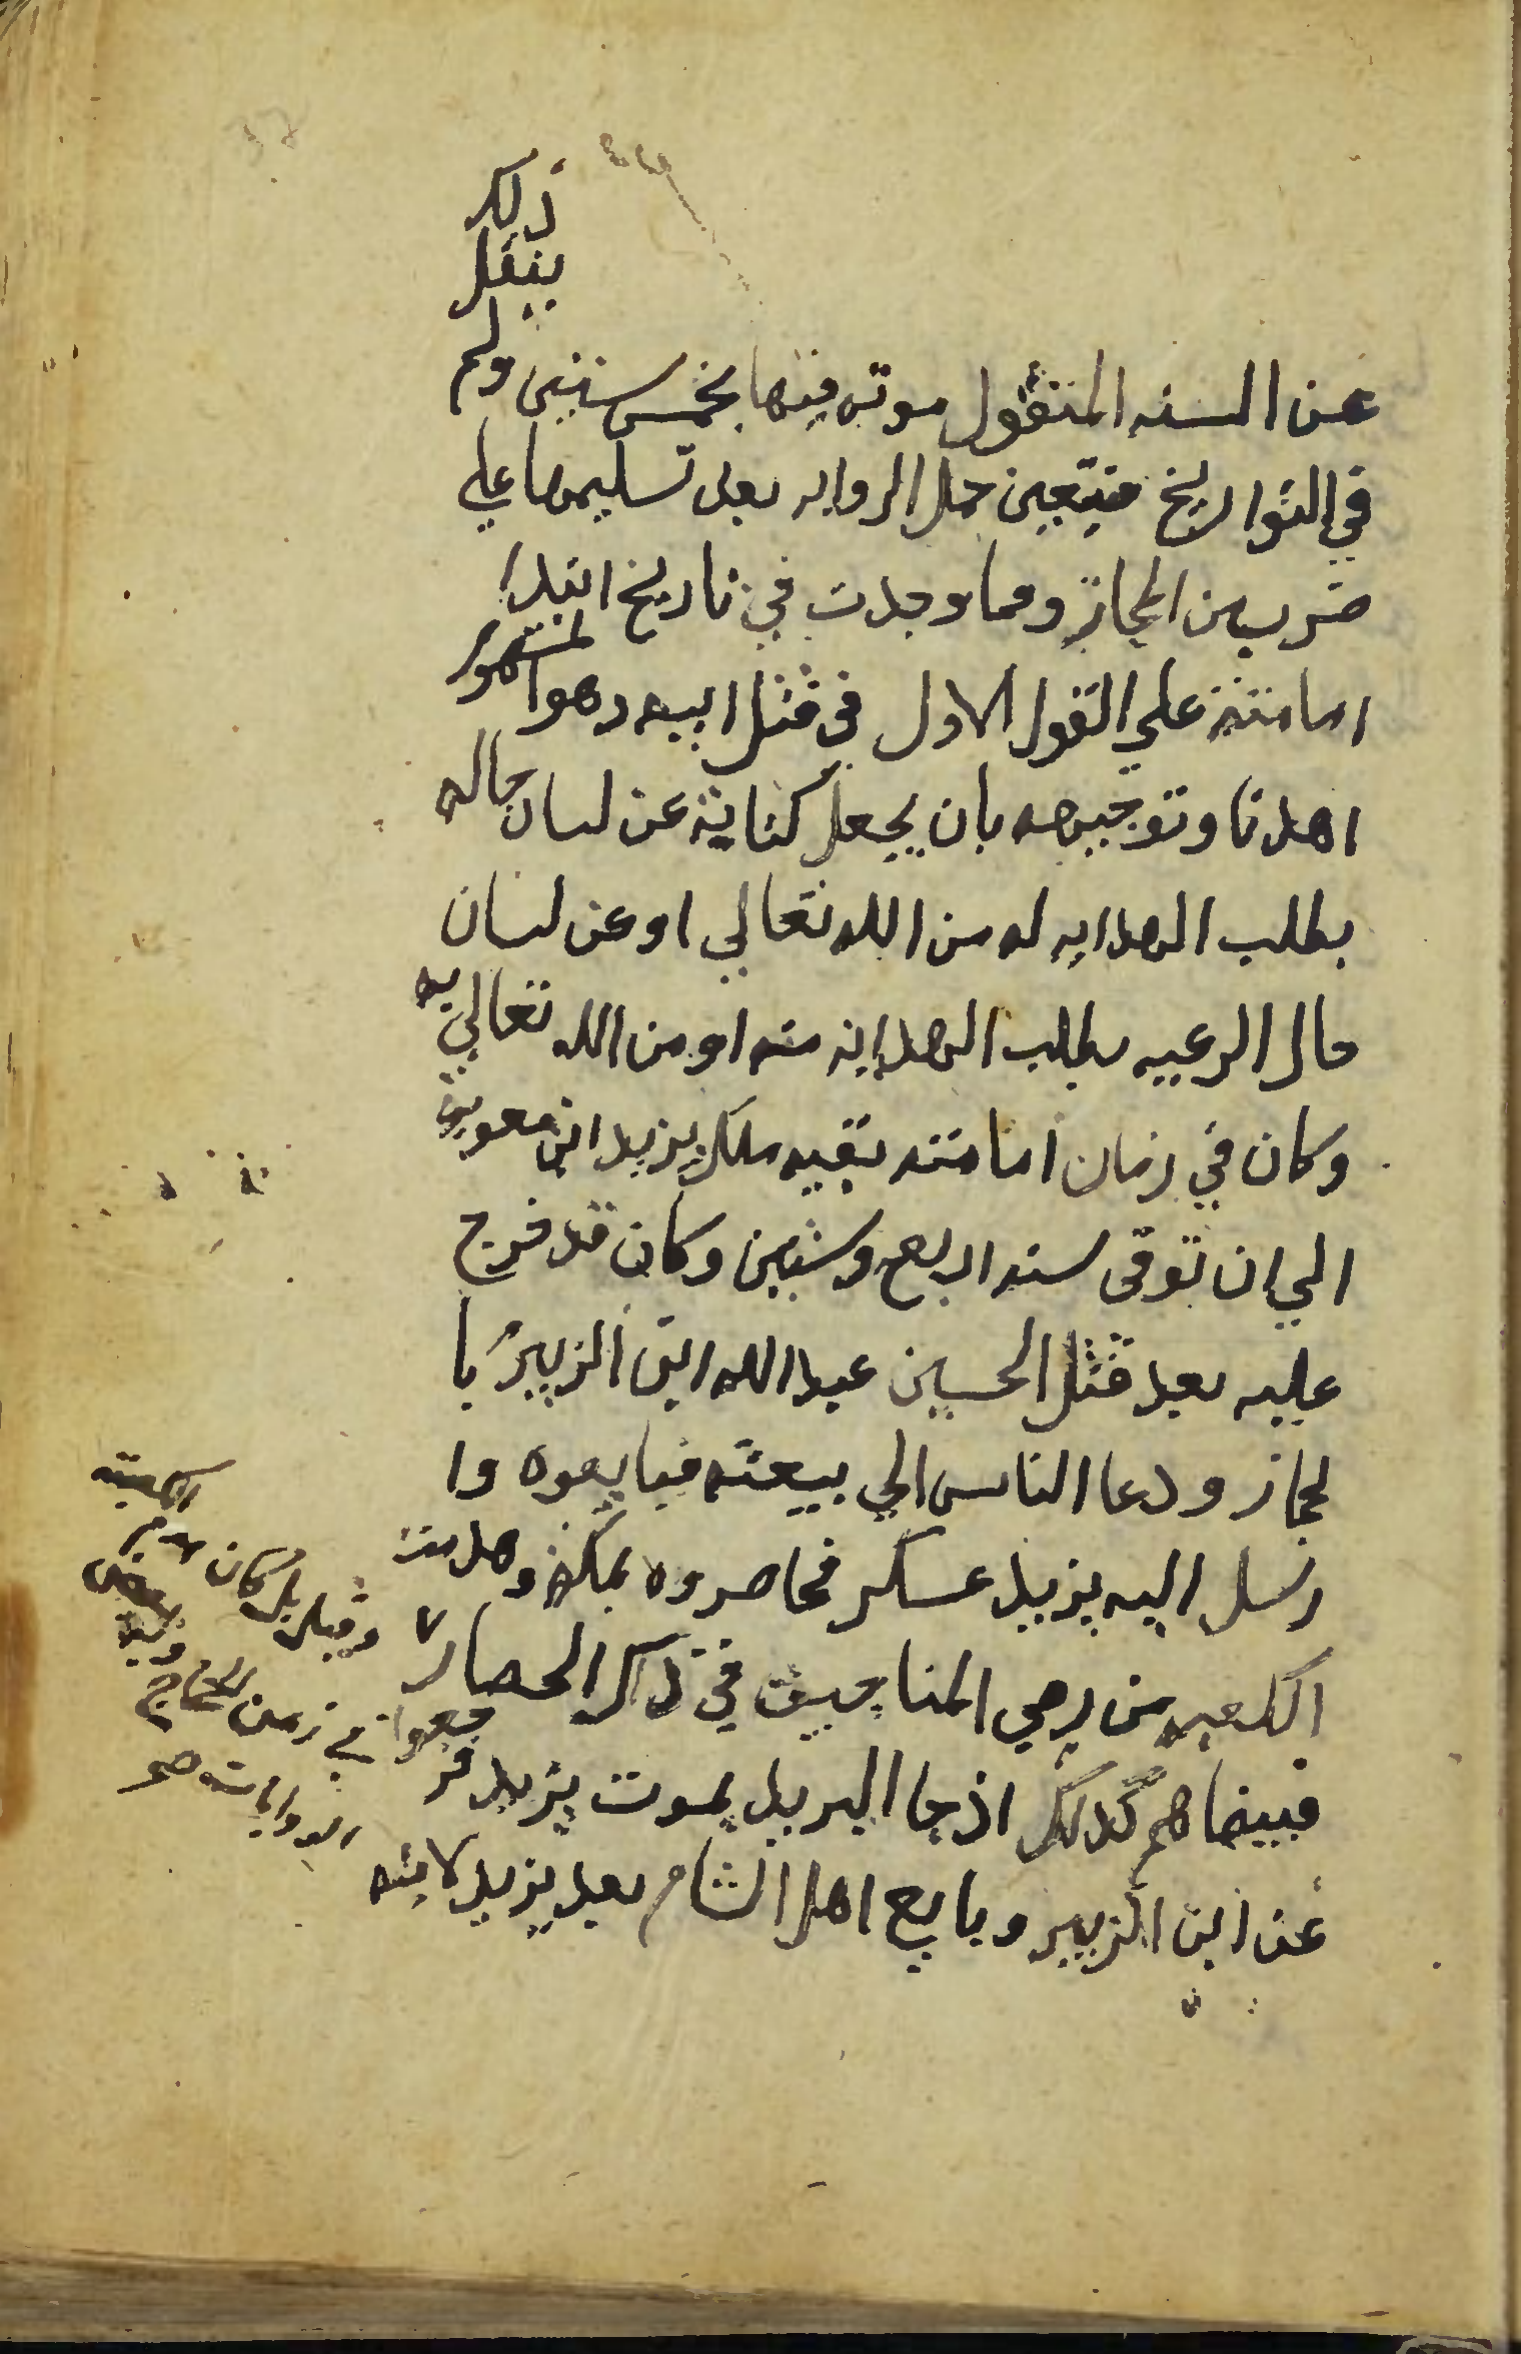 عن السنه المنقول موته فيها بخمس سنين ولم ينقل ذلك
في التواريخ فيتعين حمل الروايه بعد تسليمها علي
ضرب من المجاز ومما وجدت في تاريخ ابتدا
امامته علي القول الاول في قتل ابيه وهو المشهور
اهدنا وتوجيهه بان يجعل كناية عن لسان حاله
بطلب الهدايه له من الله تعالي او عن لسان
حال الرعيه بطلب الهداية منه او من الله تعالي به
وكان في زمان امامته بقيه ملك يزيد ابن معوية
الي ان توفى سنه اربع وستين وكان قد خرج
عليه بعد قتل الحسين عبد الله ابن الزبير با
لحجاز ودعا الناس الي بيعته فبايعوه وا
رسل اليه يزيد عسكر فحاصروه بمكة وهدمت
الكعبه من رمي المناجيق في ذلك الحصار
فبينما هم كذلك اذ جا البريد بموت يزيد فر جعوا
عن ابن الزبير وبايع اهل الشام بعد يزيد لابنه
وقيل بل كان هدم
الكعبة
في زمن الحجاج
وفي بعض
الروايات هو